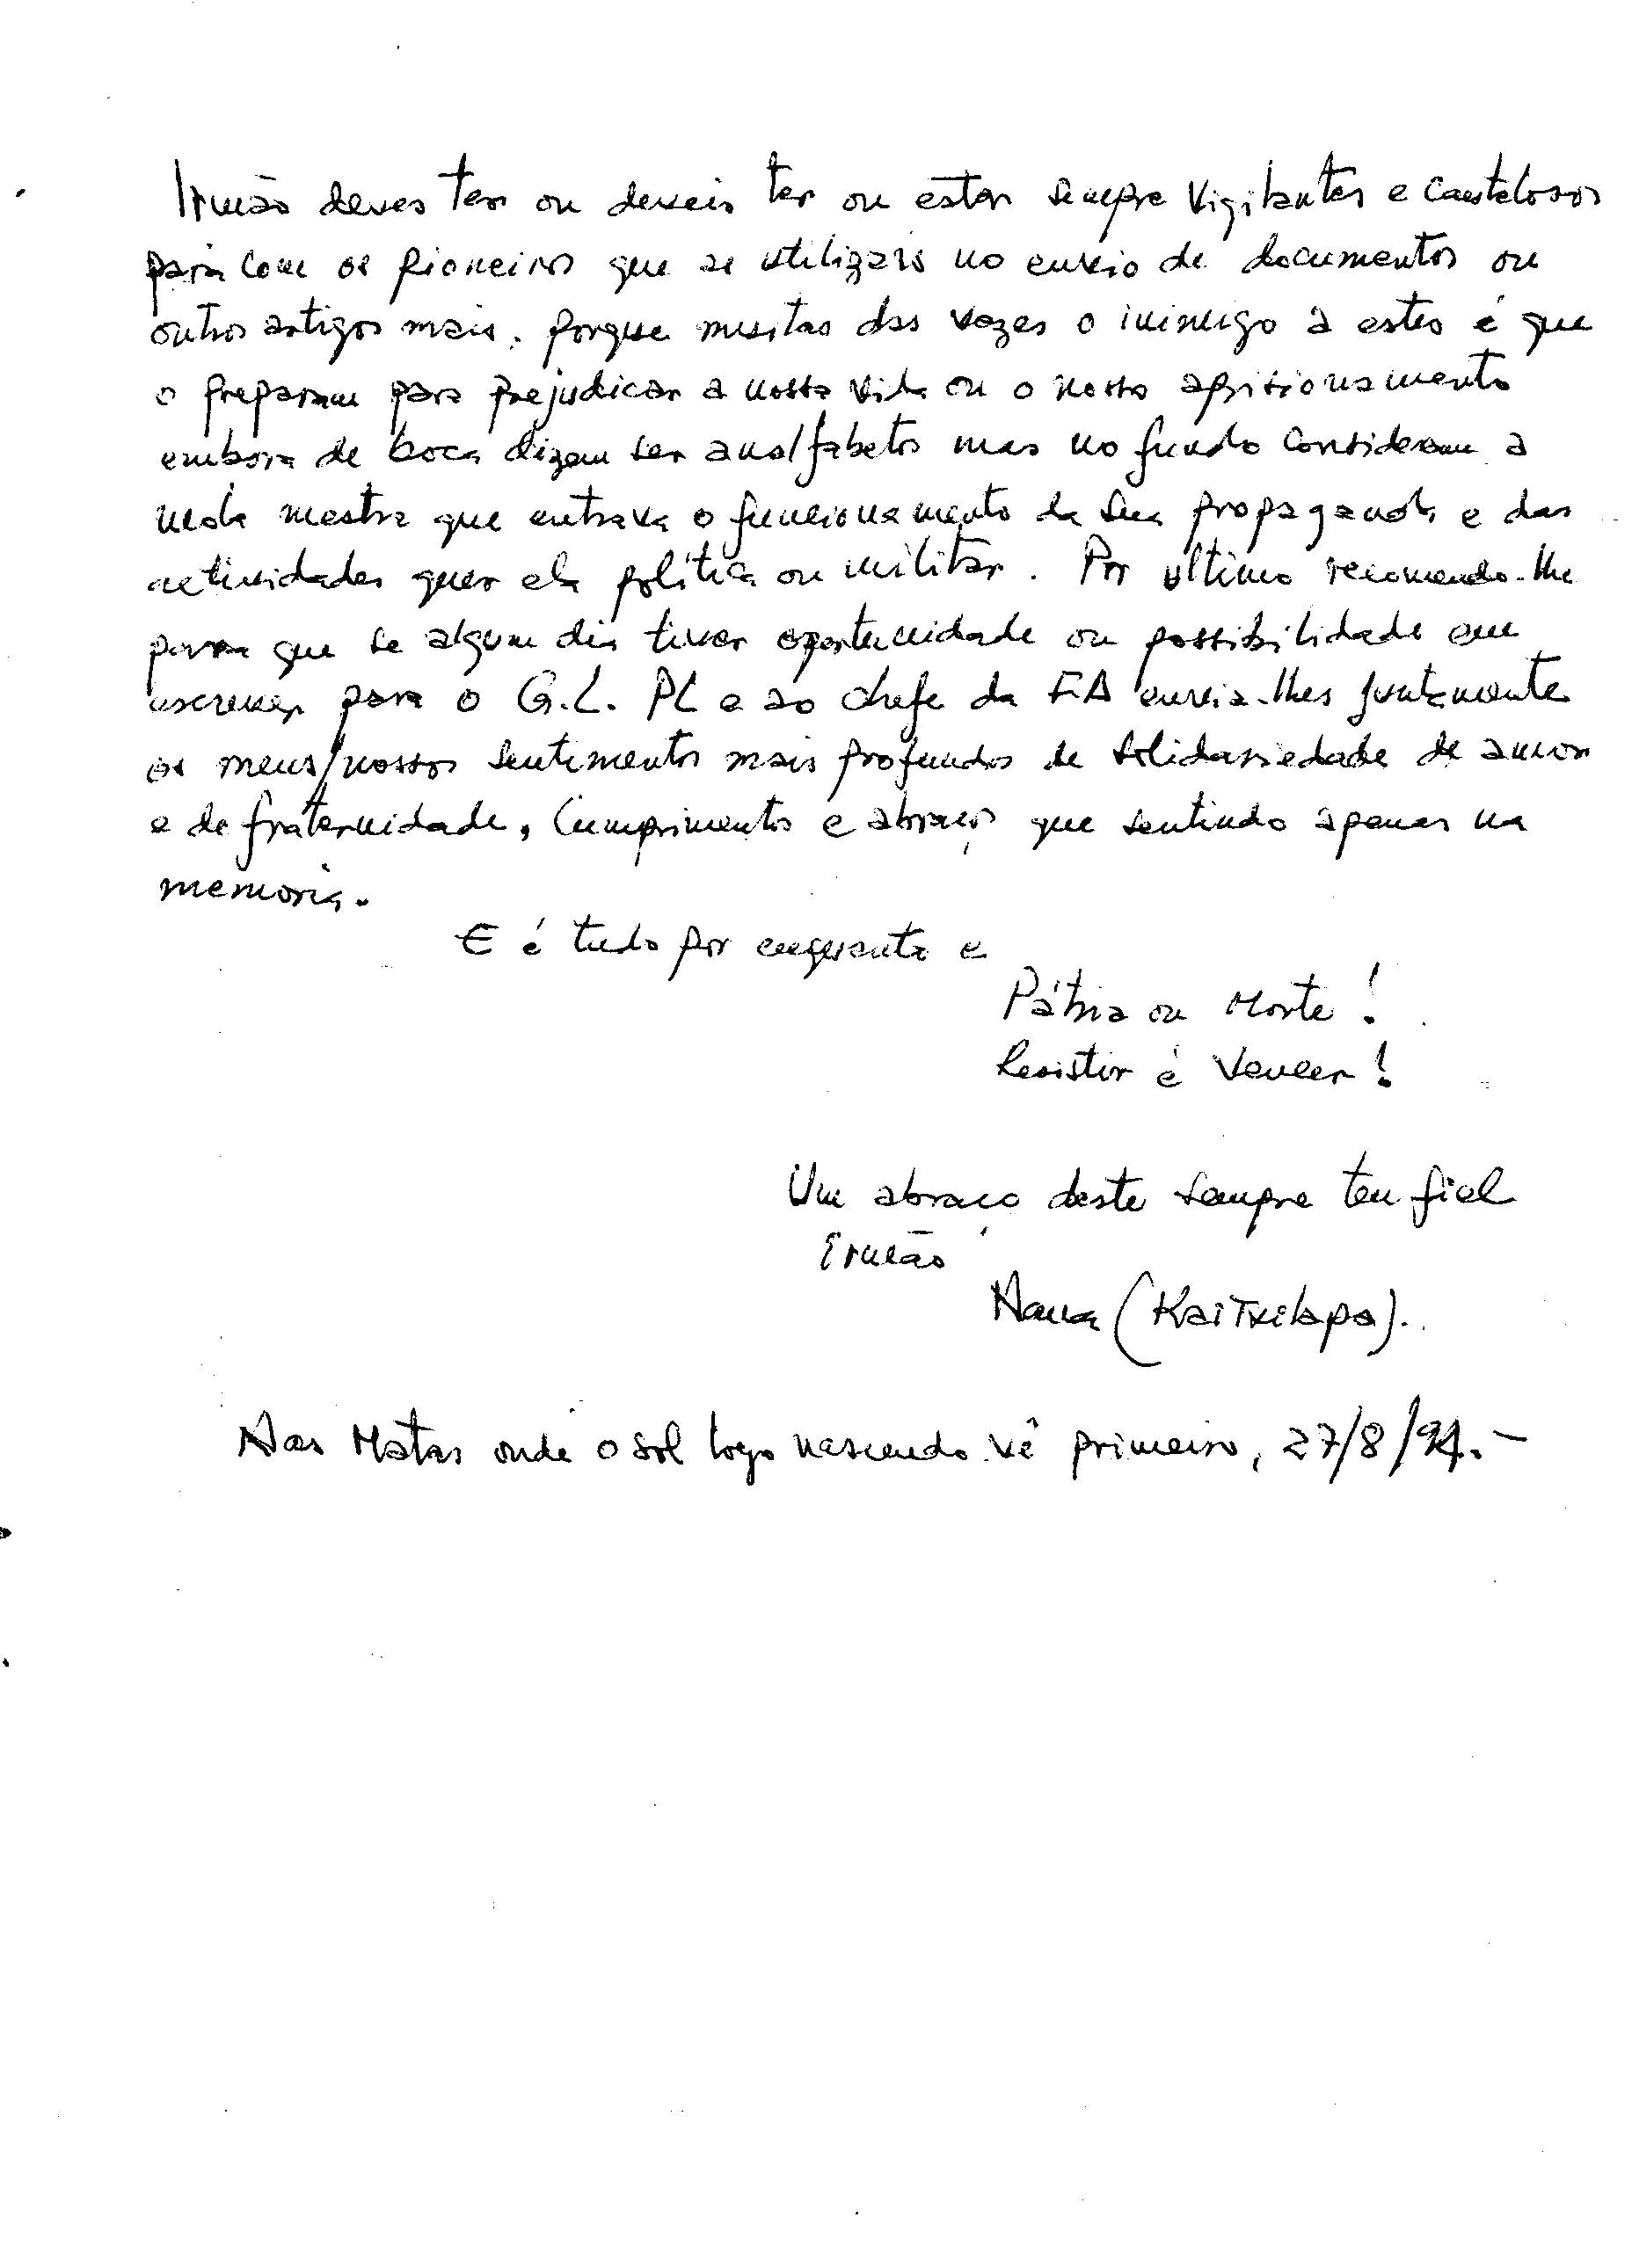 Irmão deves ter ou deveis ter ou estar sempre vigilantes e cautelosos
para com os pioneiros que se utilizais no enveio de documentos ou
outros artigos mais, porque muitas das vezes o inimigo a estes é que
o preparam para prejudicar a nossa vida ou o nosso aprisionamento
embora de boca dizem ser analfabetos mas no fundo consideram a
mola mestra que entrava o funcionamento da sua propaganda e das
actividades quer ela política ou militar. Por ultimo recomendo-lhe
para que se algum dia tiver oportunidade ou possibilidade em
escrever para o G.L. PL e ao chefe da FA enveia-lhes juntamente
os meus/nossos sentimentos mais profundos de solidariedade de amor
e de fraternidade, cumprimentos e abraços que sentindo apenas na
memoria.
E é tudo por enquanto e
Pátria ou Morte!
Resistir é Vencer!
Um abraço deste sempre teu fiel
Irmão
(Kaitxilapa).
Nas Matas onde o sol logo nascendo vê primeiro, 27/8/94.-